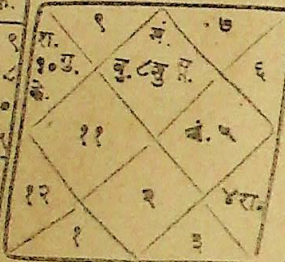 ९ मं. ७
श.
१० गु. बु. ८ शु ६
११ चं. ५
१२ २ ४ रा.
१ ३